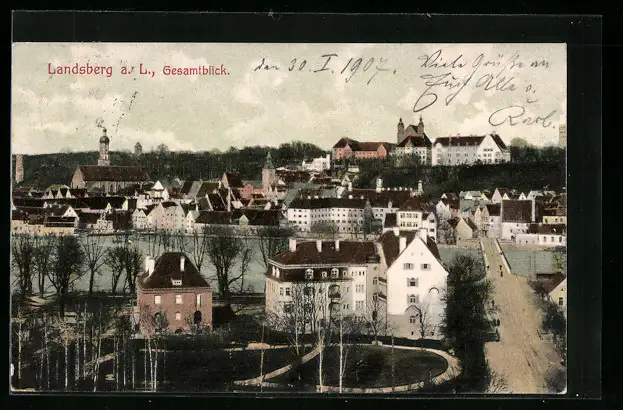 Landsberg a. L., Gesamtblick.
den 30. I. 1907.
Viele Grüße an
Euch Alle v.
Karl